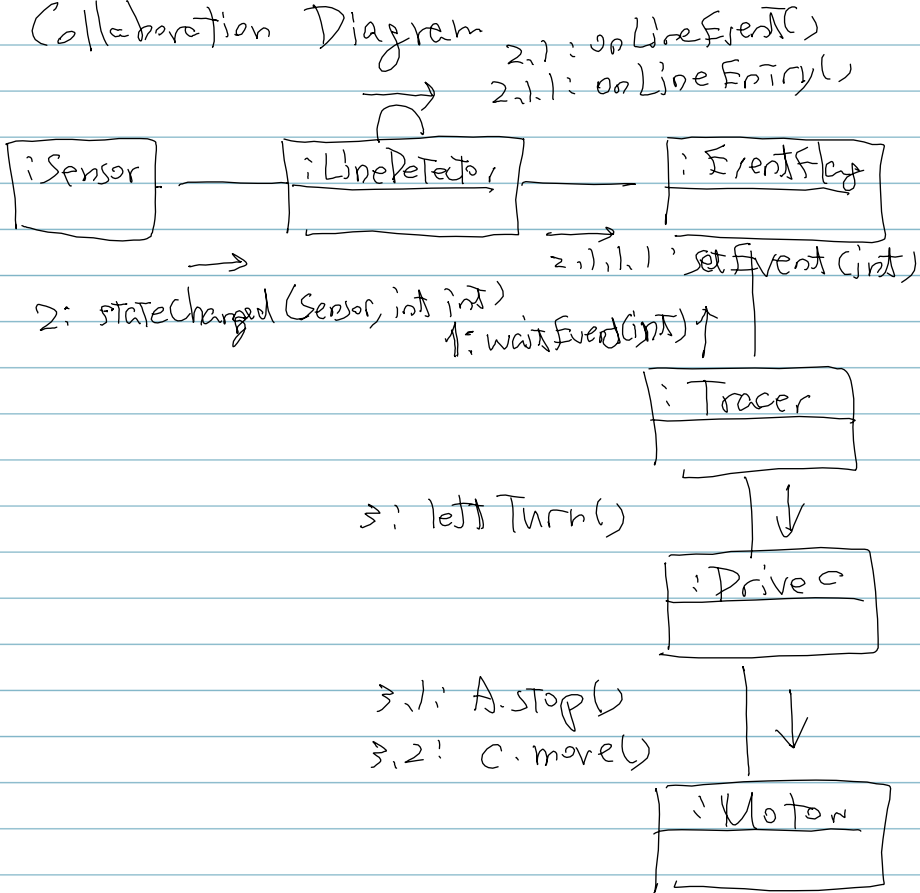 Collaboration Diagram
2.1: onLineEvent()
2.1.1: onLineEntry()
:Sensor
:LineDetector
:EventFlag
2.1.1.1: setEvent(int)
2: stateChanged(Sensor, int int)
1: waitEvent(int)
:Tracer
3: leftTurn()
:Drive
3.1: A.stop()
3.2: C.move()
:Motor